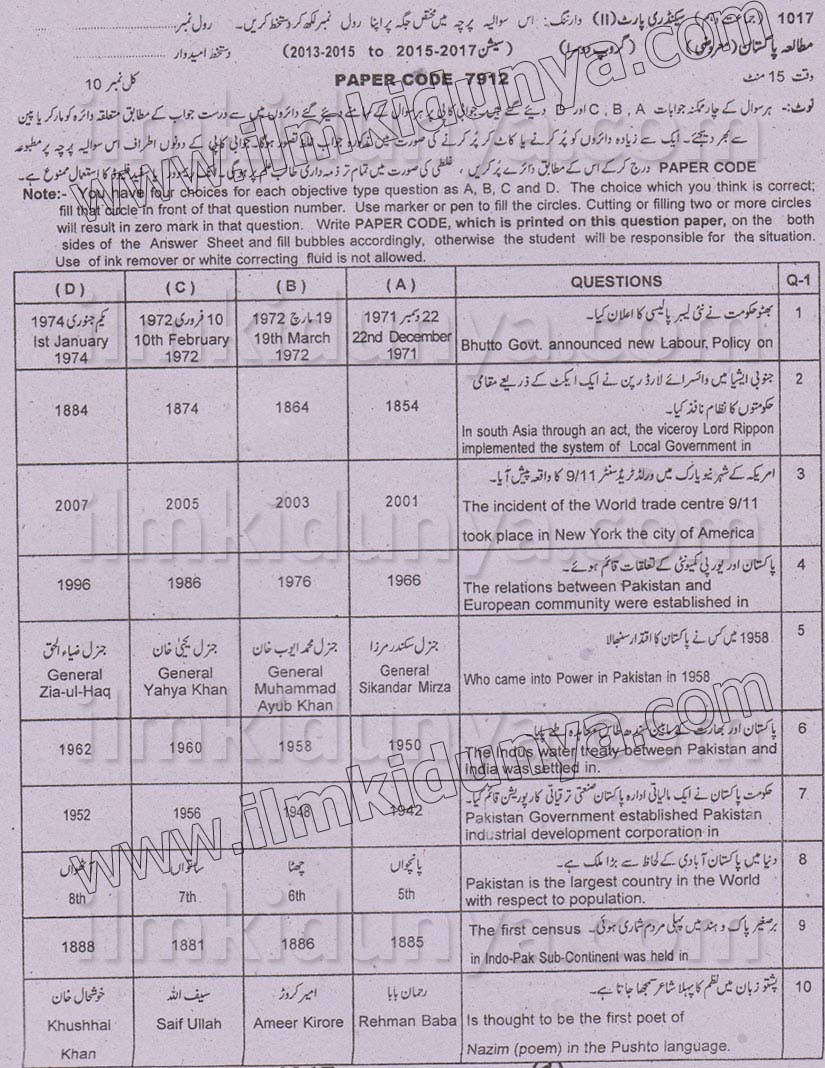 1017 (جماعت دہم) سیکنڈری پارٹ (II) وارننگ: اس سوالیہ پرچہ میں مختص جگہ پر اپنا رول نمبر لکھ کر دستخط کریں۔ رول نمبر
مطالعہ پاکستان (معروضی) (گروپ دوسرا) (سیشن 2015-2017 to 2013-2015) دستخط امیدوار
وقت 15 منٹ PAPER CODE 7912 کل نمبر 10
نوٹ:- ہر سوال کے چار ممکنہ جوابات C, B, A اور D دیئے گئے ہیں۔ جوابی کاپی پر ہر سوال کے سامنے دیئے گئے دائروں میں سے درست جواب کے مطابق متعلقہ دائرہ کو مارکر یا پین
سے بھر دیجئے۔ ایک سے زیادہ دائروں کو پُر کرنے یا کاٹ کر پُر کرنے کی صورت میں مذکورہ جواب غلط تصور ہوگا۔ جوابی کاپی کے دونوں اطراف اس سوالیہ پرچہ پر مطبوعہ
PAPER CODE درج کر کے اس کے مطابق دائرے پُر کریں، غلطی کی صورت میں تمام تر ذمہ داری طالب علم پر ہوگی۔ کا استعمال ممنوع ہے۔
Note:- You have four choices for each objective type question as A, B, C and D. The choice which you think is correct;
fill that circle in front of that question number. Use marker or pen to fill the circles. Cutting or filling two or more circles
will result in zero mark in that question. Write PAPER CODE, which is printed on this question paper, on the both
sides of the Answer Sheet and fill bubbles accordingly, otherwise the student will be responsible for the situation.
Use of ink remover or white correcting fluid is not allowed.
(D) (C) (B) (A) QUESTIONS Q-1
یکم جنوری 1974 10 فروری 1972 19 مارچ 1972 22 دسمبر 1971 بھٹو حکومت نے نئی لیبر پالیسی کا اعلان کیا۔ 1
Ist January 10th February 19th March 22nd December Bhutto Govt. announced new Labour, Policy on
1974 1972 1972 1971
جنوبی ایشیا میں وائسرائے لارڈ رپن نے ایک ایکٹ کے ذریعے مقامی 2
حکومتوں کا نظام نافذ کیا۔
1884 1874 1864 1854
In south Asia through an act, the viceroy Lord Rippon
implemented the system of Local Government in
امریکہ کے شہر نیویارک میں ورلڈ ٹریڈ سنٹر 9/11 کا واقعہ پیش آیا۔ 3
2007 2005 2003 2001 The incident of the World trade centre 9/11
took place in New York the city of America
پاکستان اور یورپی کمیونٹی کے تعلقات قائم ہوئے۔ 4
1996 1986 1976 1966 The relations between Pakistan and
European community were established in
1958 میں کس نے پاکستان کا اقتدار سنبھالا 5
جنرل ضیاء الحق جنرل یحییٰ خان جنرل محمد ایوب خان جنرل سکندر مرزا
General General General General Who came into Power in Pakistan in 1958
Zia-ul-Haq Yahya Khan Muhammad Sikandar Mirza
Ayub Khan
پاکستان اور بھارت کے مابین سندھ طاس معاہدہ طے پایا 6
1962 1960 1958 1950 The Indus water treaty between Pakistan and
India was settled in.
حکومت پاکستان نے ایک مالیاتی ادارہ پاکستان صنعتی ترقیاتی کارپوریشن قائم کیا۔ 7
1952 1956 1948 1942 Pakistan Government established Pakistan
industrial development corporation in
دنیا میں پاکستان آبادی کے لحاظ سے بڑا ملک ہے۔ 8
آٹھواں ساتواں چھٹا پانچواں
8th 7th 6th 5th Pakistan is the largest country in the World
with respect to population.
The first census برصغیر پاک و ہند میں پہلی مردم شماری ہوئی۔ 9
1888 1881 1886 1885 in Indo-Pak Sub-Continent was held in
خوشحال خان سیف اللہ امیر کروڑ رحمان بابا پشتو زبان میں نظم کا پہلا شاعر سمجھا جاتا ہے۔ 10
Khushhal Saif Ullah Ameer Kirore Rehman Baba Is thought to be the first poet of
Khan Nazim (poem) in the Pushto language.
www.ilmkidunya.com
www.ilmkidunya.com
ilmkidunya.com
ilmkidunya.com
ilmkidunya.com
ilmkidunya.com